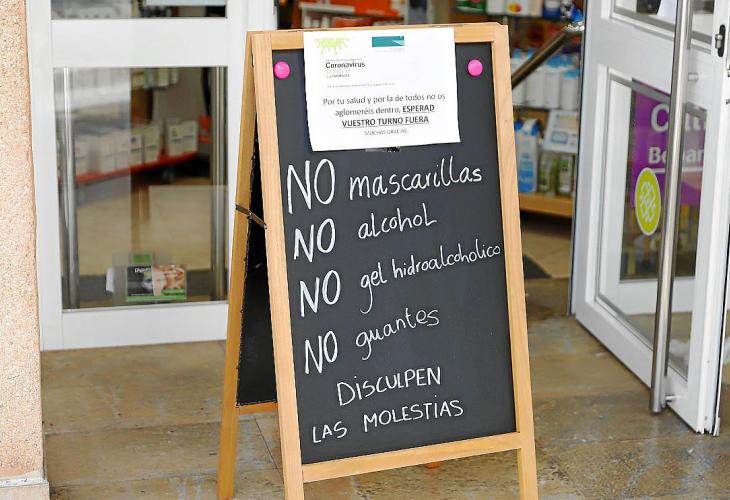 Coronavirus
Por tu salud y por la de todos no os
aglomeréis dentro, ESPERAD
VUESTRO TURNO FUERA
MUCHAS GRACIAS
NO mascarillas
NO alcohol
NO gel hidroalcoholico
NO guantes
DISCULPEN
LAS MOLESTIAS